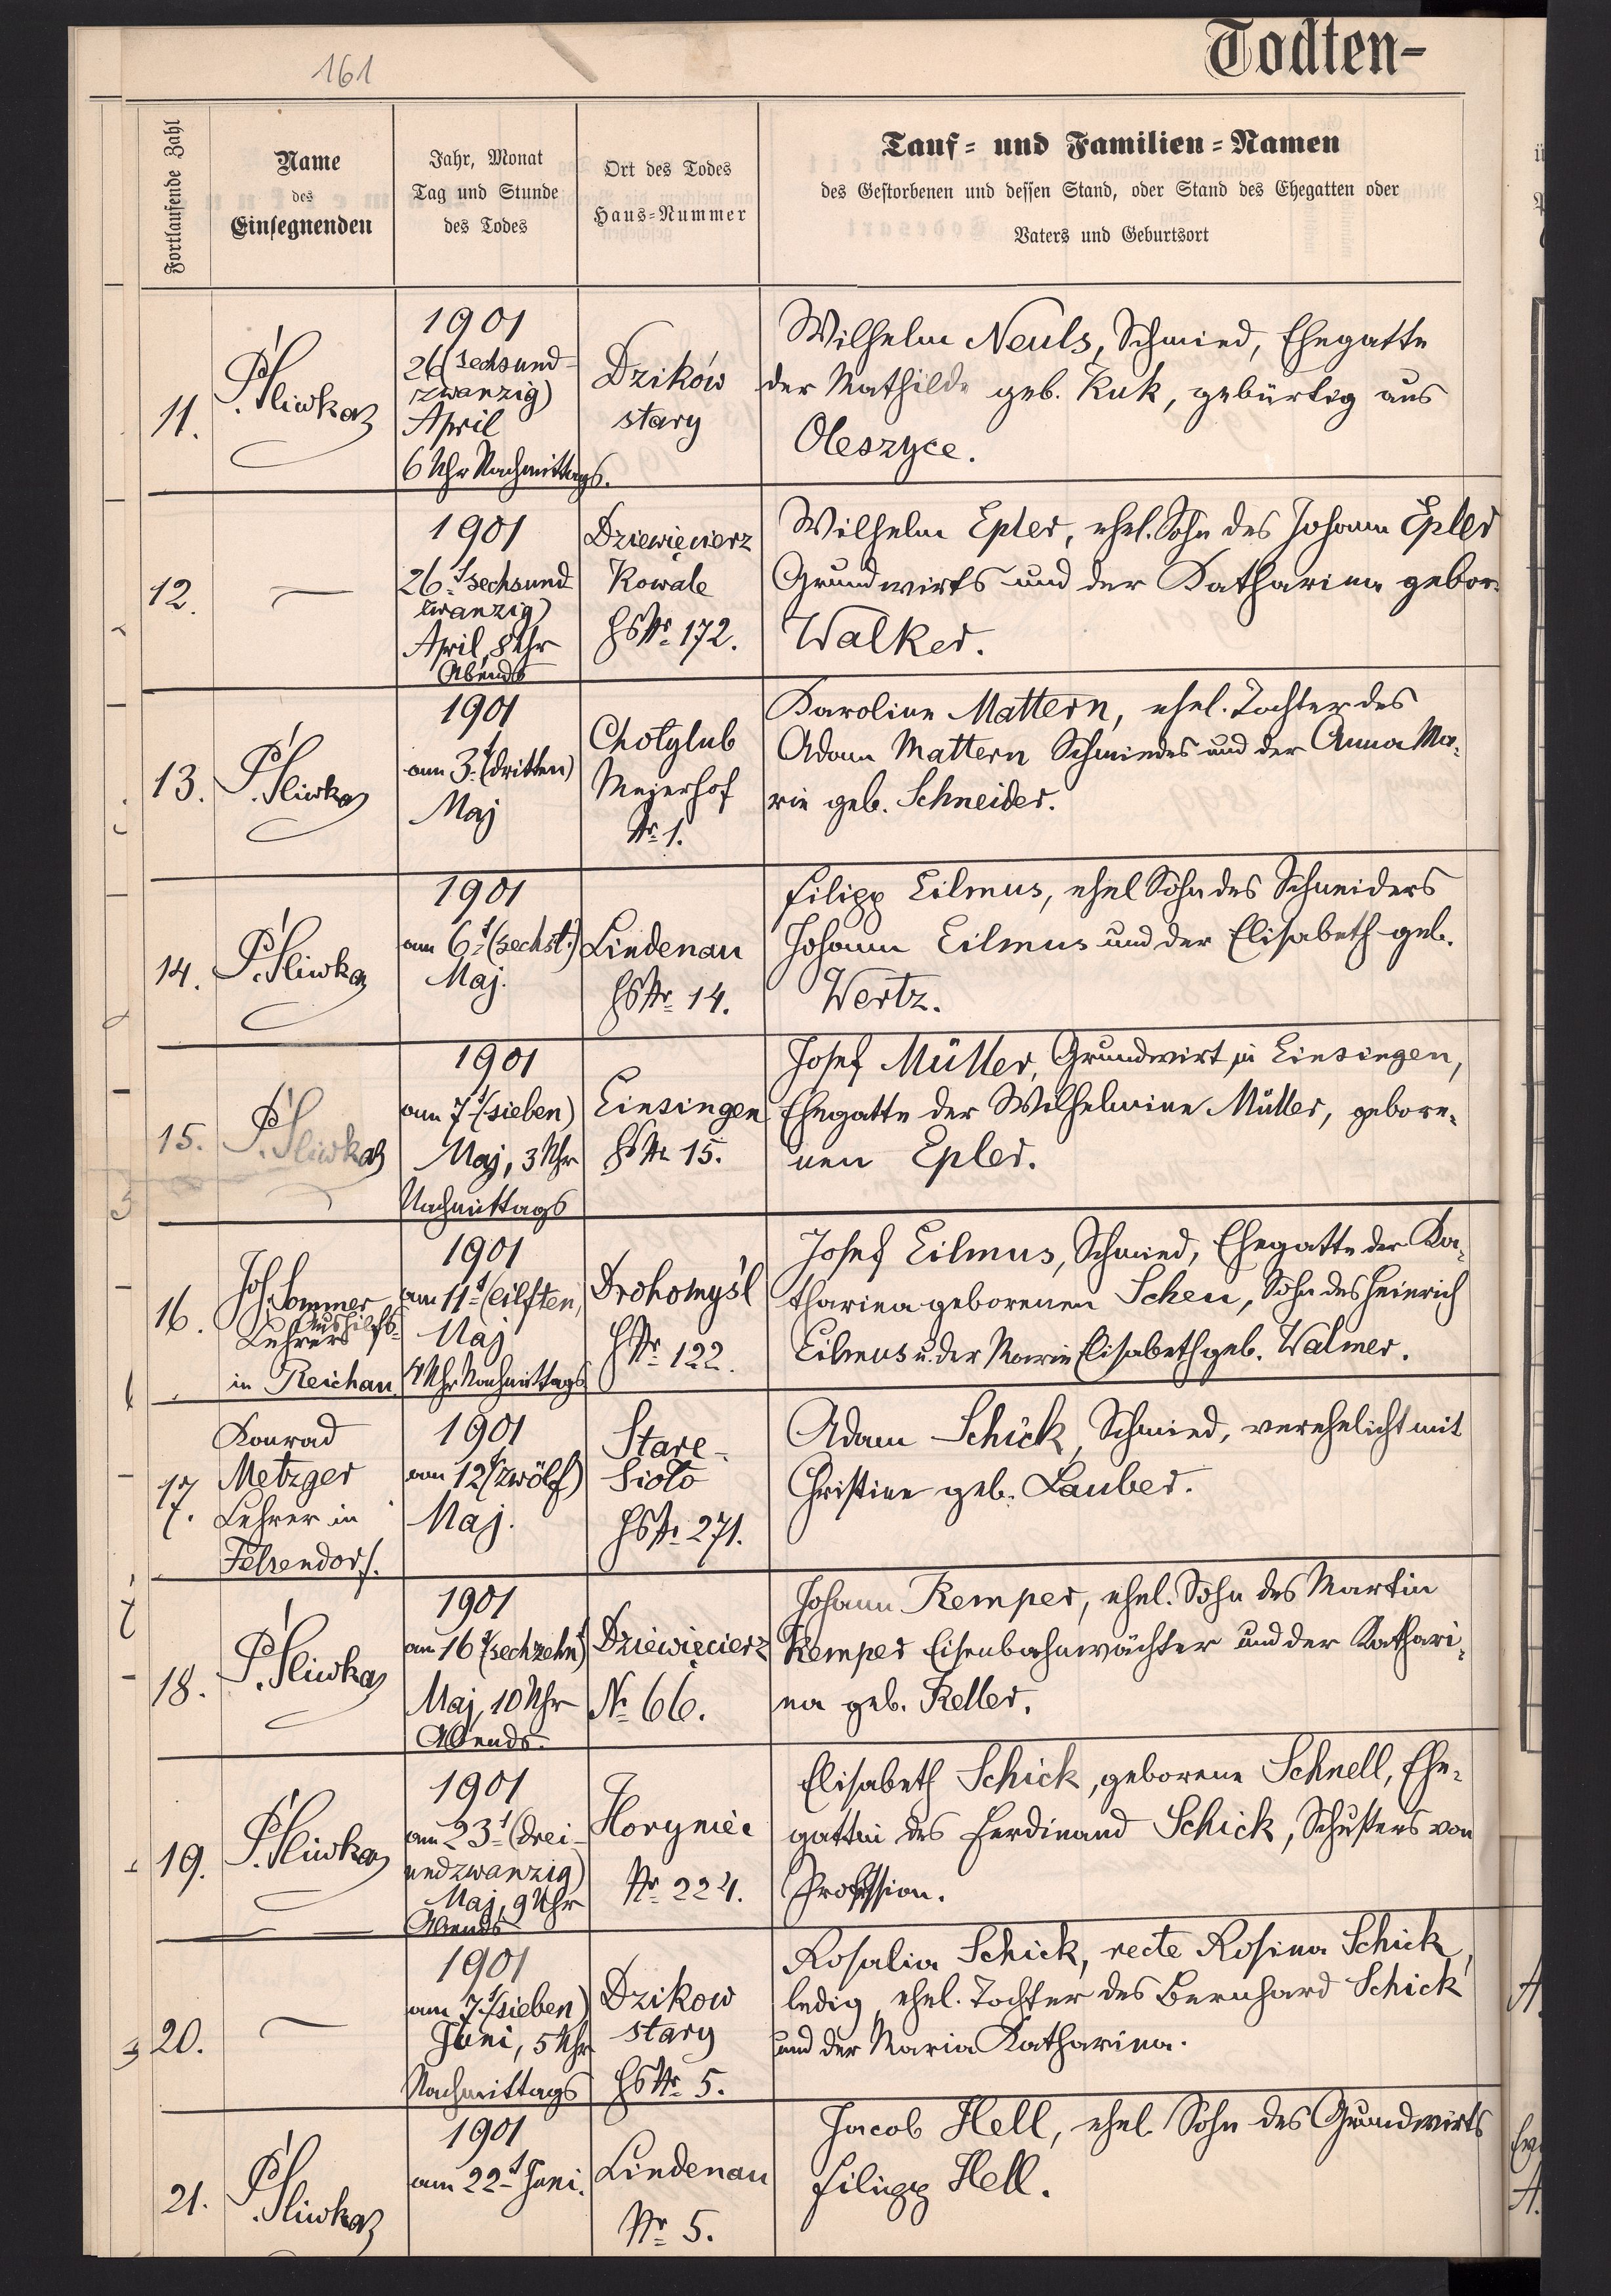 161
Todten-
Fortlaufende Zahl
Name
des
Einsegnenden
Jahr, Monat
Tag und Stunde
des Todes
Ort des Todes
Haus-Nummer
Tauf- und Familien-Namen
des Gestorbenen und dessen Stand, oder Stand des Ehegatten oder
Vaters und Geburtsort
11.
P. Śliwka
1901
26 (sechsund-
zwanzig)
April
6 Uhr Nachmittags.
Dzików
stary
Wilhelm Neuls, Schmied, Ehegatte
der Mathilde geb. Kuk, gebürtig aus
Oleszyce.
12.
1901
26. (sechsund
zwanzig)
April, 8 Uhr
Abends
Dziewięcierz
Kowale
HsNr. 172.
Wilhelm Epler, ehel. Sohn des Johann Epler
Grundwirts und der Katharina gebor.
Walker.
13.
P. Śliwka
1901
am 3. (dritten)
Maj
Chotylub
Mejerhof
Nr. 1.
Karoline Mattern, ehel. Tochter des
Adam Mattern Schmiedes und der Anna Ma-
rie geb. Schneider.
14.
P. Śliwka
1901
am 6t. (sechst.)
Maj.
Lindenau
HsNr. 14.
Filipp Eilmus, ehel Sohn des Schneiders
Johann Eilmus und der Elisabeth geb.
Wertz.
15.
P. Śliwka
1901
am 7t (sieben)
Maj, 3 Uhr
Nachmittags
Einsingen
HsNr. 15.
Josef Müller, Grundwirt in Einsingen,
Ehegatte der Wilhelmine Müller, gebore-
nen Epler.
16.
Joh. Sommer
Aushilfs-
Lehrers
in Reichau
1901
am 11t. (eilften)
Maj
4 Uhr Nachmittags
Drohomyśl
HNr. 122.
Josef Eilmus, Schmied, Ehegatte der Ka-
tharina geborenen Scheu, Sohn des Heinrich
Eilmus u. der Marie Elisabeth geb. Walmer.
17.
Konrad
Metzger
Lehrer in
Felsendorf.
1901
am 12t (zwölf)
Maj.
Stare-
Sioło
HsNr. 271.
Adam Schick, Schmied, verehelicht mit
Christine geb. Lauber.
18.
P. Śliwka
1901
am 16t (sechzehn)
Maj, 10 Uhr
Abends.
Dziewięcierz
No 66.
Johann Kemper, ehel. Sohn des Martin
Kemper Eisenbahnwächter und der Kathari-
na geb. Keller.
19.
P. Śliwka
1901
am 23t. (drei-
undzwanzig)
Maj, 9 Uhr
Abends
Horyniec
Nr. 224.
Elisabeth Schick, geborene Schnell, Ehe-
gattin des Ferdinand Schick, Schusters von
Profession.
20.
1901
am 7t (sieben)
Juni, 5 Uhr
Nachmittags
Dzikow
stary
HsNr. 5.
Rosalia Schick, recte Rosina Schick,
ledig, ehel. Tochter des Bernhard Schick
und der Maria Katharina.
21.
P. Śliwka
1901
am 22t Juni.
Lindenau
Nr. 5.
Jacob Hell, ehel. Sohn des Grundwirts
Filipp Hell.